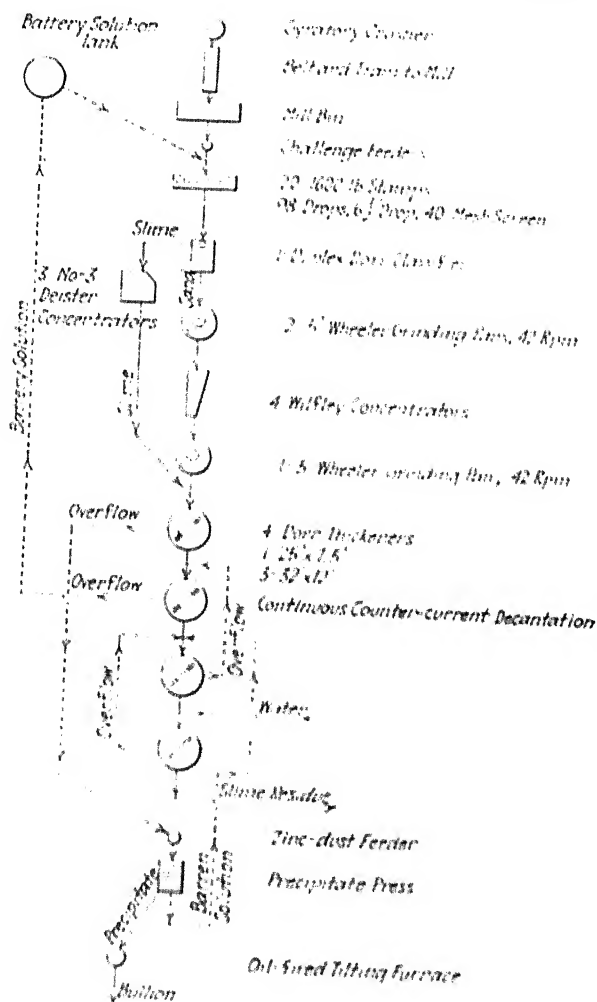 Battery Solution
Tank
Gyratory Crusher
Belt and Tram to Mill
Mill Bin
Challenge Feeders
20-1600 lb Stamps
98 Drops, 6½" Drop, 40-Mesh Screen
Slime
1-Duplex Dorr Classifier
3 No-3
Deister
Concentrators
Sand
2-5' Wheeler Grinding Pans, 42 Rpm
Battery Solution
Slime
4 Wilfley Concentrators
1-5' Wheeler Grinding Pan, 42 Rpm
Overflow
4 Dorr Thickeners
Overflow
Continuous Counter-current Decantation
Overflow
Overflow
Water
Slime Residue
Zinc-dust Feeder
Precipitate Press
Precipitate
Barren
Solution
Oil-Fired Tilting Furnace
Bullion